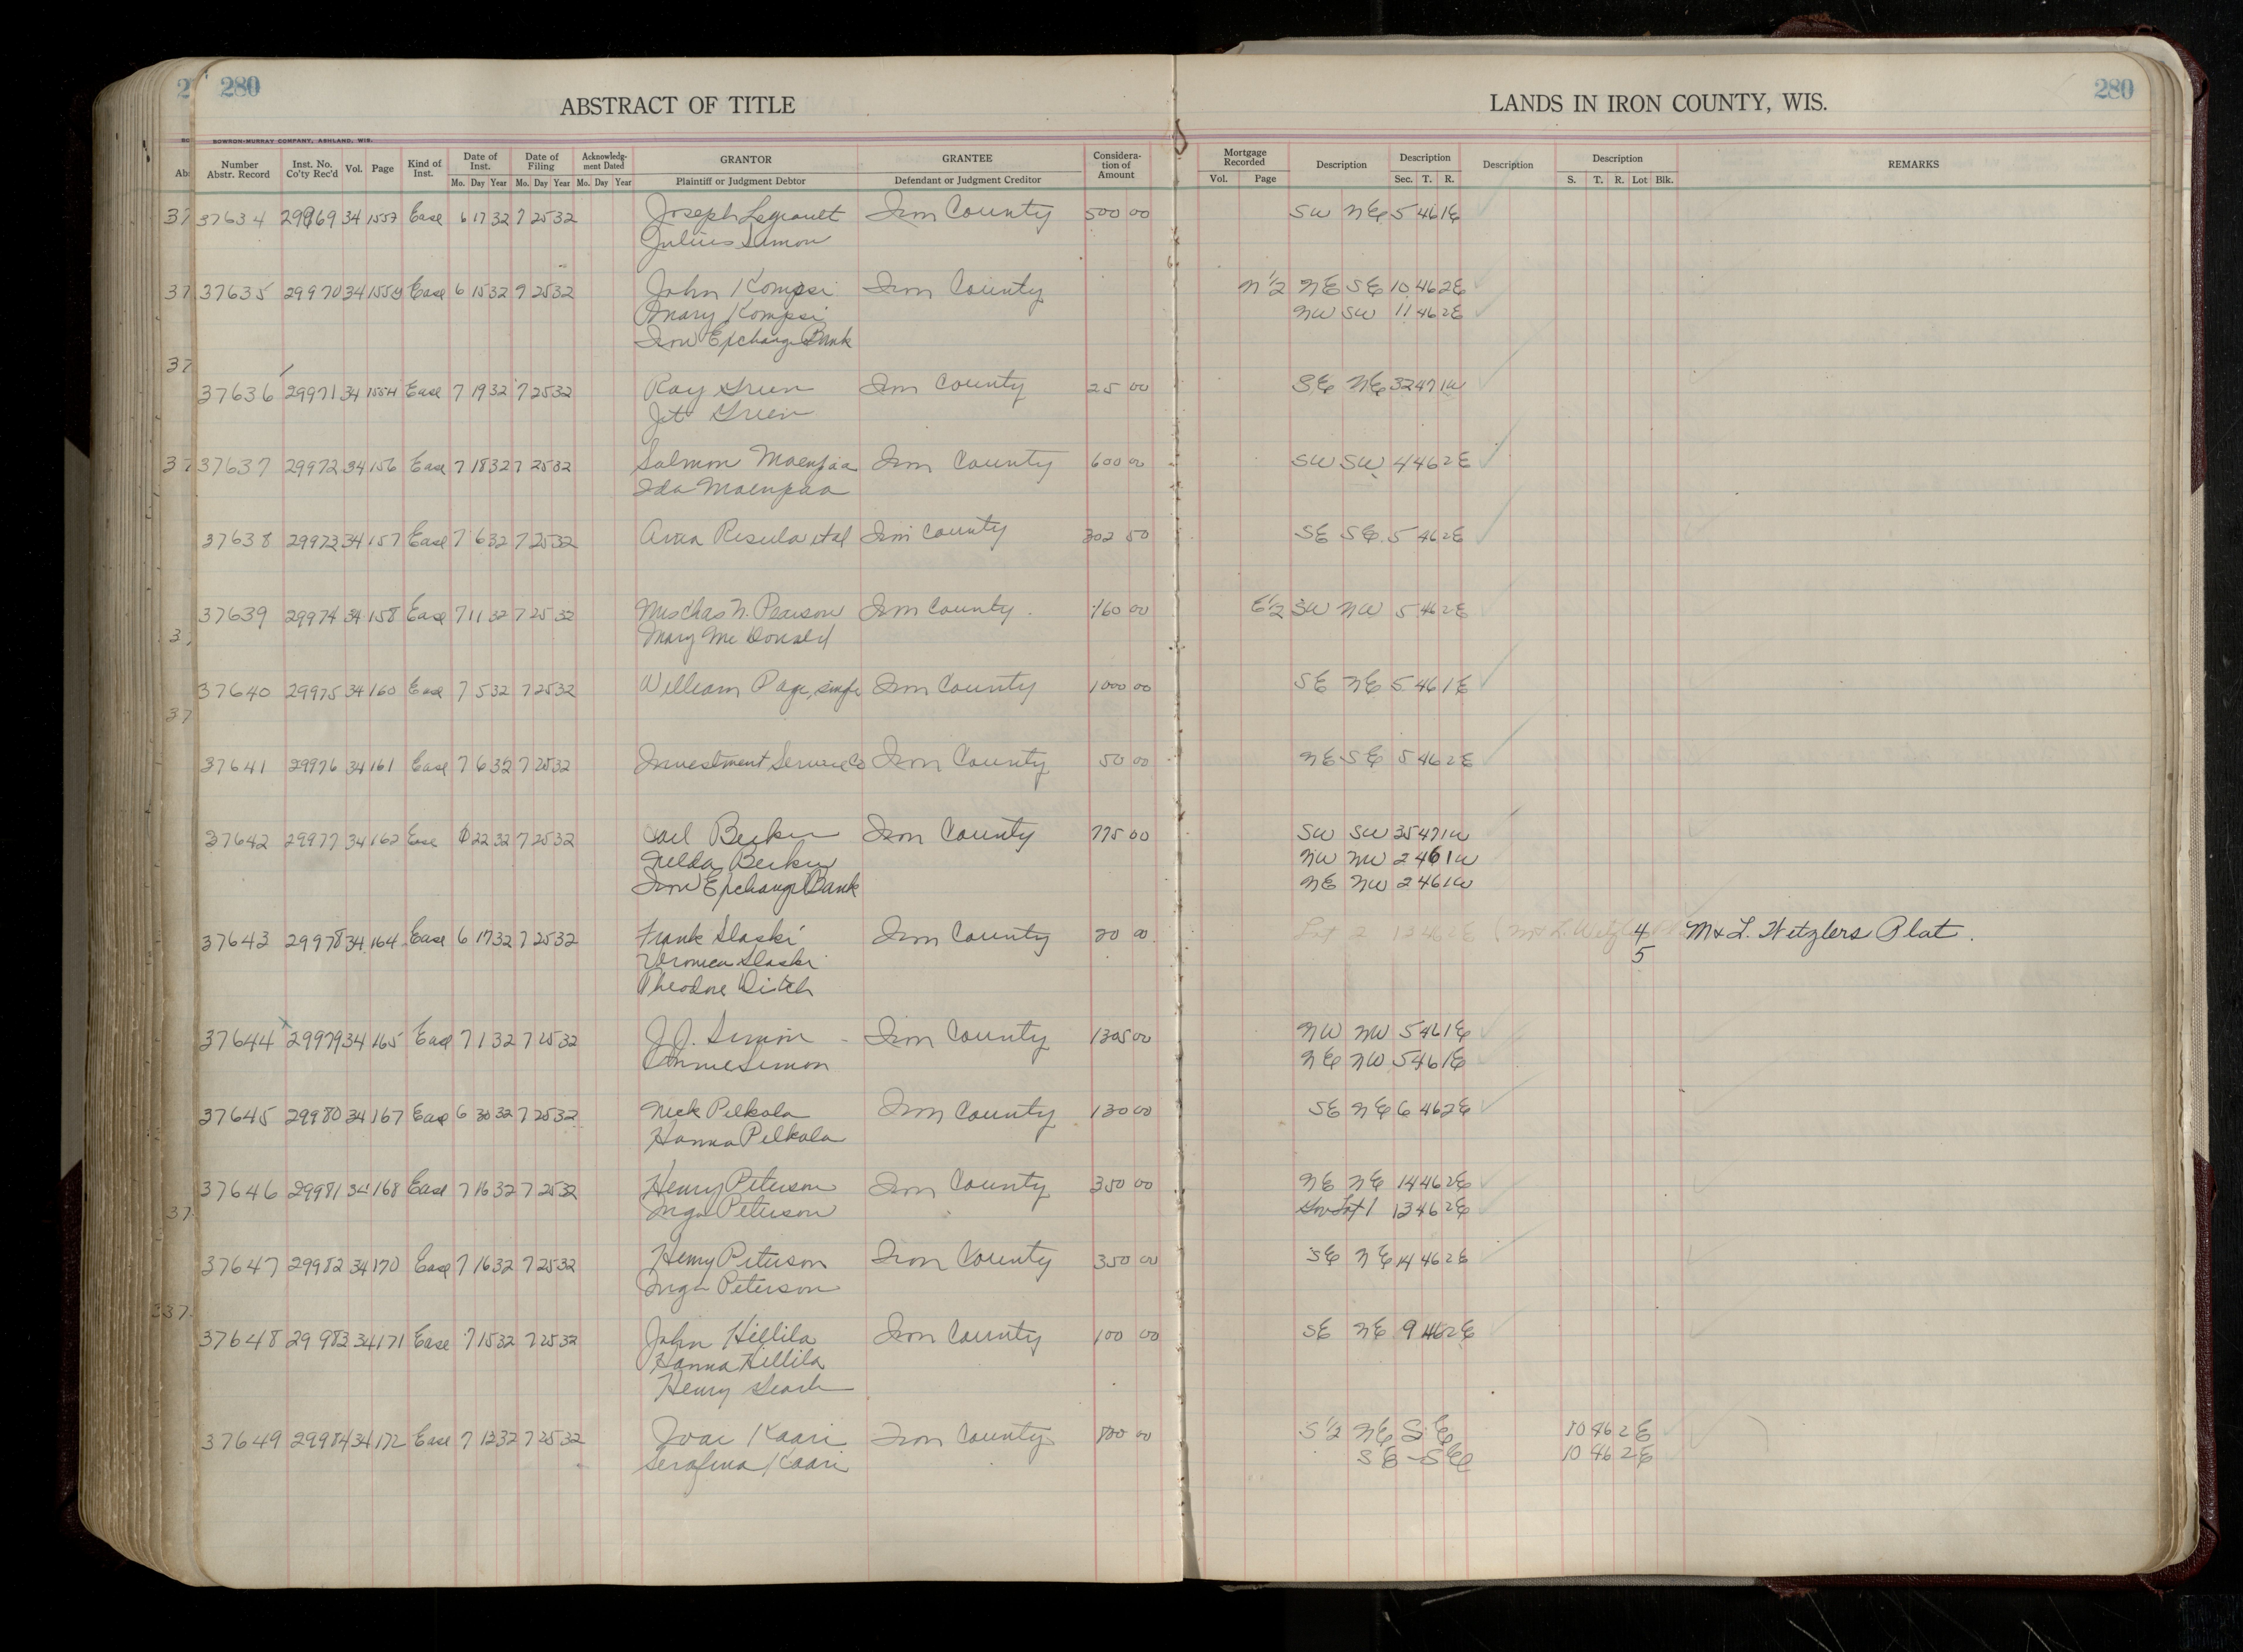 280
ABSTRACT OF TITLE
LANDS IN IRON COUNTY, WIS.
280
BOWRON-MURRAY COMPANY, ASHLAND, WIS.
Number Abstr. Record Inst. No. Co'ty Rec'd Vol. Page Kind of Inst. Date of Inst. Date of Filing Acknowledg-ment Dated GRANTOR GRANTEE Considera-tion of Amount Mortgage Recorded Description Description Description Description REMARKS
Mo. Day Year Mo. Day Year Mo. Day Year Plaintiff or Judgment Debtor Defendant or Judgment Creditor Vol. Page Sec. T. R. S. T. R. Lot Blk.
37634 29969 34 Ease 6 17 32 7 25 32 Joseph Legrault Iron County 500 00 SW NE 5 46 1E
Julius Simon
37635 29970 34 Ease 6 15 32 7 25 32 John Kompsi Iron County N 1/2 NE SE 10 46 2E
Mary Kompsi NW SW 11 46 2E
Iron Exchange Bank
37636 29971 34 Ease 7 19 32 7 25 32 Ray Green Iron County 25 00 SE NE 32 47 1W
Green
37637 29972 34 156 Ease 7 18 32 7 25 32 Salmon Maenpaa Iron County 600 00 SW SW 4 46 2E
Ida Maenpaa
37638 29973 34 157 Ease 7 6 32 7 25 32 et al Iron County 302 50 SE SE 5 46 2E
37639 29974 34 158 Ease 7 11 32 7 25 32 Mrs Chas N. Pearson Iron County 160 00 E 1/2 SW NW 5 46 2E
Mary Mc Donald
37640 29975 34 160 Ease 7 5 32 7 25 32 William Page, single Iron County 1000 00 SE NE 5 46 1E
37641 29976 34 161 Ease 7 6 32 7 25 32 Investment Service Co Iron County 50 00 NE SE 5 46 2E
37642 29977 34 162 Ease 22 32 7 25 32 Carl Becker Iron County 775 00 SW SW 35 47 1W
Becker NW NW 2 46 1W
Iron Exchange Bank NE NW 2 46 1W
37643 29978 34 164 Ease 6 17 32 7 25 32 Frank Slaski Iron County 20 00 4 M & L. Wetzlers Plat.
Veronica Slaski 5
Theodore Ditch
37644 29979 34 165 Ease 7 1 32 7 25 32 J.J. Simon Iron County 1305 00 NW NW 5 46 1E
Simon NE NW 5 46 1E
37645 29980 34 167 Ease 6 30 32 7 25 32 Nick Pelkola Iron County 130 00 SE NE 6 46 2E
Hanna Pelkola
37646 29981 34 168 Ease 7 16 32 7 25 32 Henry Peterson Iron County 350 00 NE NE 14 46 2E
Inga Peterson Gov Lot 1 13 46 2E
37647 29982 34 170 Ease 7 16 32 7 25 32 Henry Peterson Iron County 350 00 SE NE 14 46 2E
Inga Peterson
37648 29983 34 171 Ease 7 15 32 7 25 32 John Hillila Iron County 100 00 SE NE 9 46 2E
Hanna Hillila
Henry
37649 29984 34 172 Ease 7 12 32 7 25 32 Kaari Iron County 800 00 S 1/2 NE SE 10 46 2E
Serafina Kaari SE SE 10 46 2E